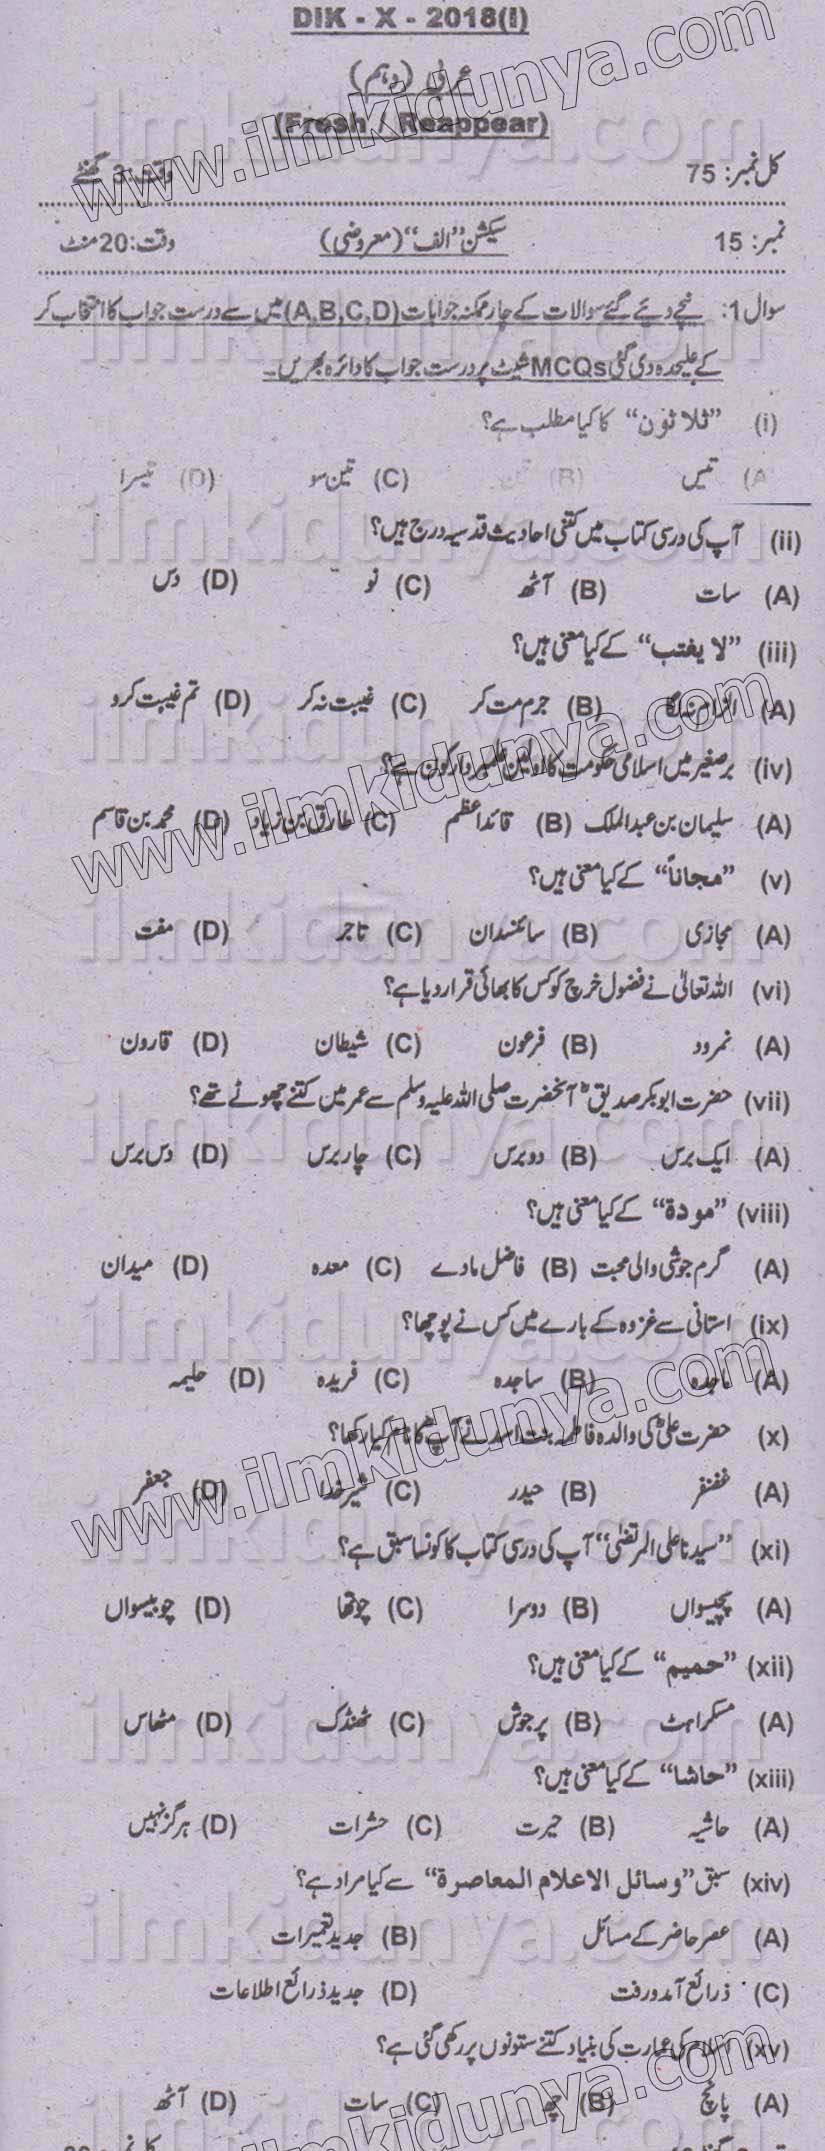 DIK - X - 2018(I)
عربی (دہم)
(Fresh / Reappear)
کل نمبر: 75 وقت: 3 گھنٹے
نمبر: 15 سیکشن "الف" (معروضی) وقت: 20 منٹ
سوال 1: نیچے دیئے گئے سوالات کے چار ممکنہ جوابات (A,B,C,D) میں سے درست جواب کا انتخاب کر
کے علیحدہ دی گئی MCQs شیٹ پر درست جواب کا دائرہ بھریں۔
(i) "ثلاثون" کا کیا مطلب ہے؟
(A) تیس (B) تین (C) تین سو (D) تیسرا
(ii) آپ کی درسی کتاب میں کتنی احادیث قدسیہ درج ہیں؟
(A) سات (B) آٹھ (C) نو (D) دس
(iii) "لا یغتب" کے کیا معنی ہیں؟
(A) الزام نہ لگا (B) جرم مت کر (C) غیبت نہ کر (D) تم غیبت کرو
(iv) برصغیر میں اسلامی حکومت کا اولین علمبردار کون ہے؟
(A) سلیمان بن عبدالملک (B) قائداعظم (C) طارق بن زیاد (D) محمد بن قاسم
(v) "مجاناً" کے کیا معنی ہیں؟
(A) مجازی (B) سائنسدان (C) تاجر (D) مفت
(vi) اللہ تعالیٰ نے فضول خرچ کو کس کا بھائی قرار دیا ہے؟
(A) نمرود (B) فرعون (C) شیطان (D) قارون
(vii) حضرت ابوبکر صدیقؓ آنحضرت صلی اللہ علیہ وسلم سے عمر میں کتنے چھوٹے تھے؟
(A) ایک برس (B) دو برس (C) چار برس (D) دس برس
(viii) "مودۃ" کے کیا معنی ہیں؟
(A) گرم جوشی والی محبت (B) فاضل مادے (C) معدہ (D) میدان
(ix) استانی سے غزوہ کے بارے میں کس نے پوچھا؟
(A) ماجدہ (B) ساجدہ (C) فریدہ (D) حلیمہ
(x) حضرت علیؓ کی والدہ فاطمہ بنت اسد نے آپؓ کا نام کیا رکھا؟
(A) غضنفر (B) حیدر (C) شیر خدا (D) جعفر
(xi) "سیدنا علی المرتضیٰ" آپ کی درسی کتاب کا کونسا سبق ہے؟
(A) پچیسواں (B) دوسرا (C) چوتھا (D) چوبیسواں
(xii) "حمیم" کے کیا معنی ہیں؟
(A) مسکراہٹ (B) پرجوش (C) ٹھنڈک (D) مٹھاس
(xiii) "حاشا" کے کیا معنی ہیں؟
(A) حاشیہ (B) حیرت (C) حشرات (D) ہرگز نہیں
(xiv) سبق "وسائل الاعلام المعاصرة" سے کیا مراد ہے؟
(A) عصر حاضر کے مسائل (B) جدید تعمیرات
(C) ذرائع آمدورفت (D) جدید ذرائع اطلاعات
(xv) اسلام کی عمارت کی بنیاد کتنے ستونوں پر رکھی گئی ہے؟
(A) پانچ (B) چھ (C) سات (D) آٹھ
www.ilmkidunya.com
www.ilmkidunya.com
www.ilmkidunya.com
www.ilmkidunya.com